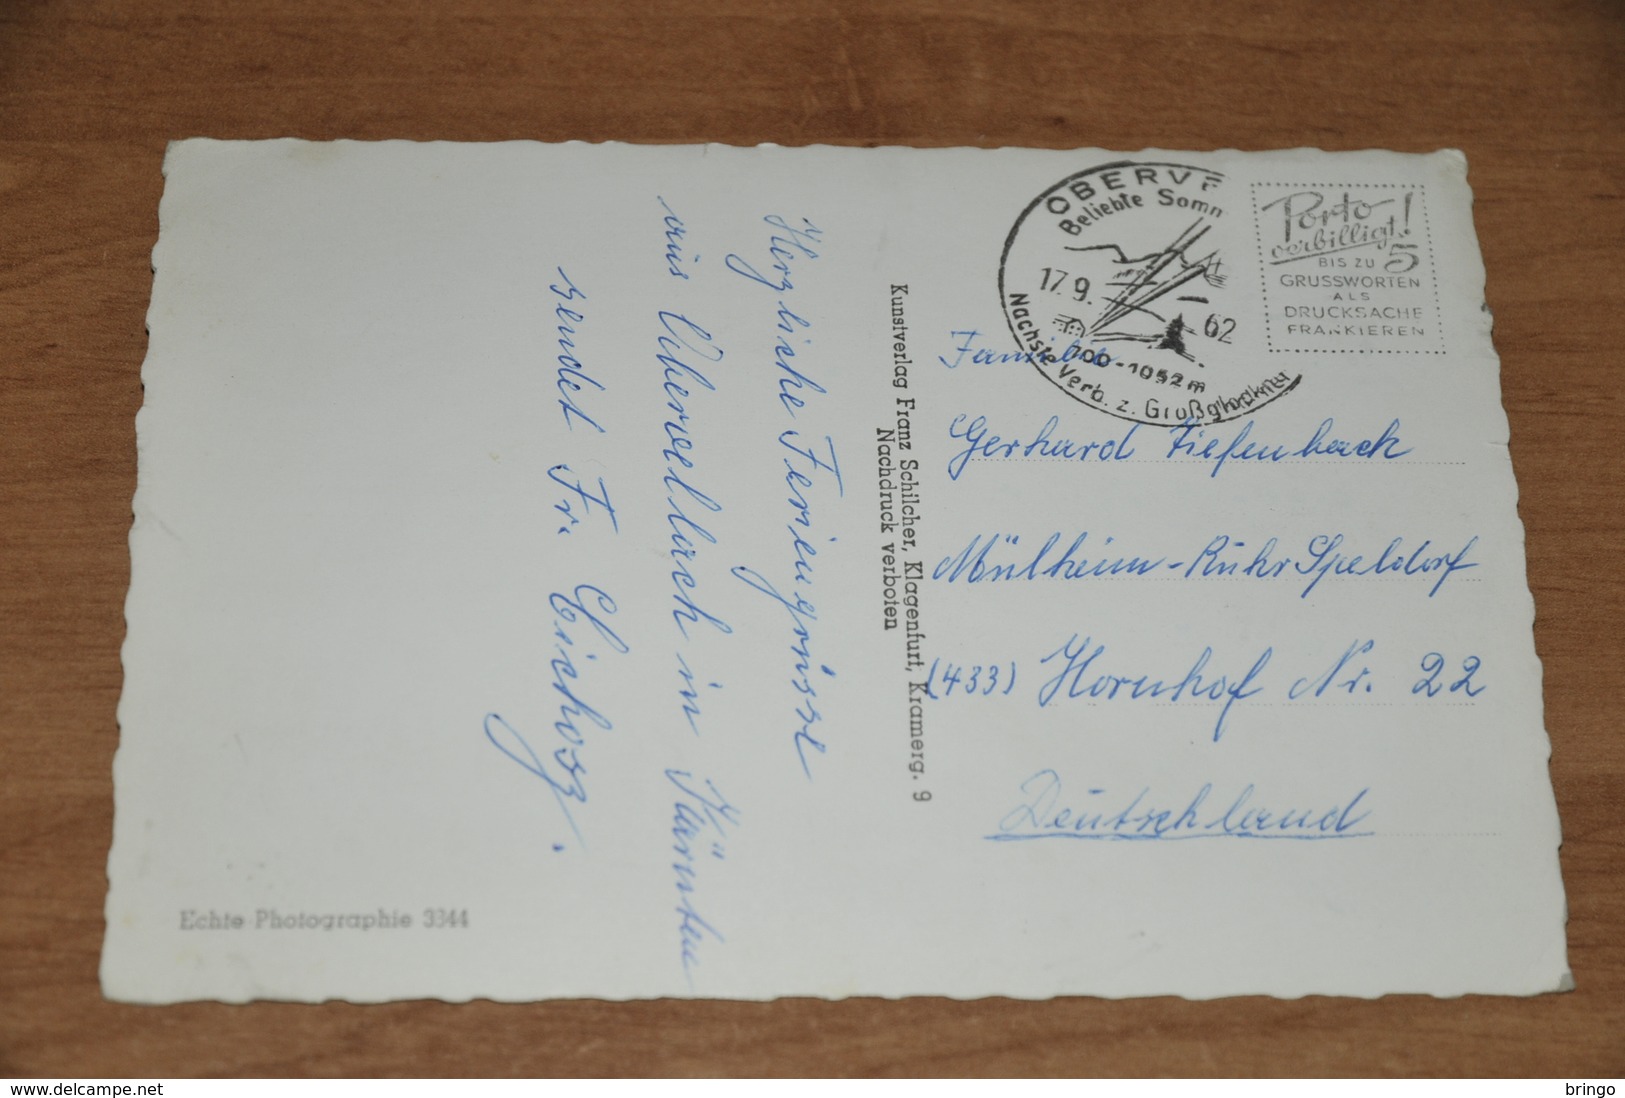 Herzliche Feriengrüsse
aus Obervellach in Kärnten
sendet Fr. Eichosz.
Echte Photographie 3344
Kunstverlag Franz Schilcher, Klagenfurt, Kramerg. 9
Nachdruck verboten
OBERVE
Beliebte Somm
17.9. 62
700-1052m
Nächste Verb. z. Großglockner
Porto
verbilligt!
BIS ZU 5
GRUSSWORTEN
ALS
DRUCKSACHE
FRANKIEREN
Familie
Gerhard Tiefenbach
Mülheim-Ruhr Speldorf
(433) Hornhof Nr. 22
Deutschland
www.delcampe.net
bringo